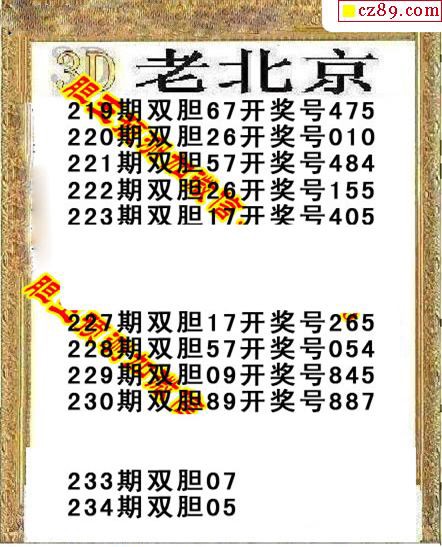 cz89.com
3D 老北京
219期双胆67开奖号475
220期双胆26开奖号010
221期双胆57开奖号484
222期双胆26开奖号155
223期双胆17开奖号405
227期双胆17开奖号265
228期双胆57开奖号054
229期双胆09开奖号845
230期双胆89开奖号887
233期双胆07
234期双胆05